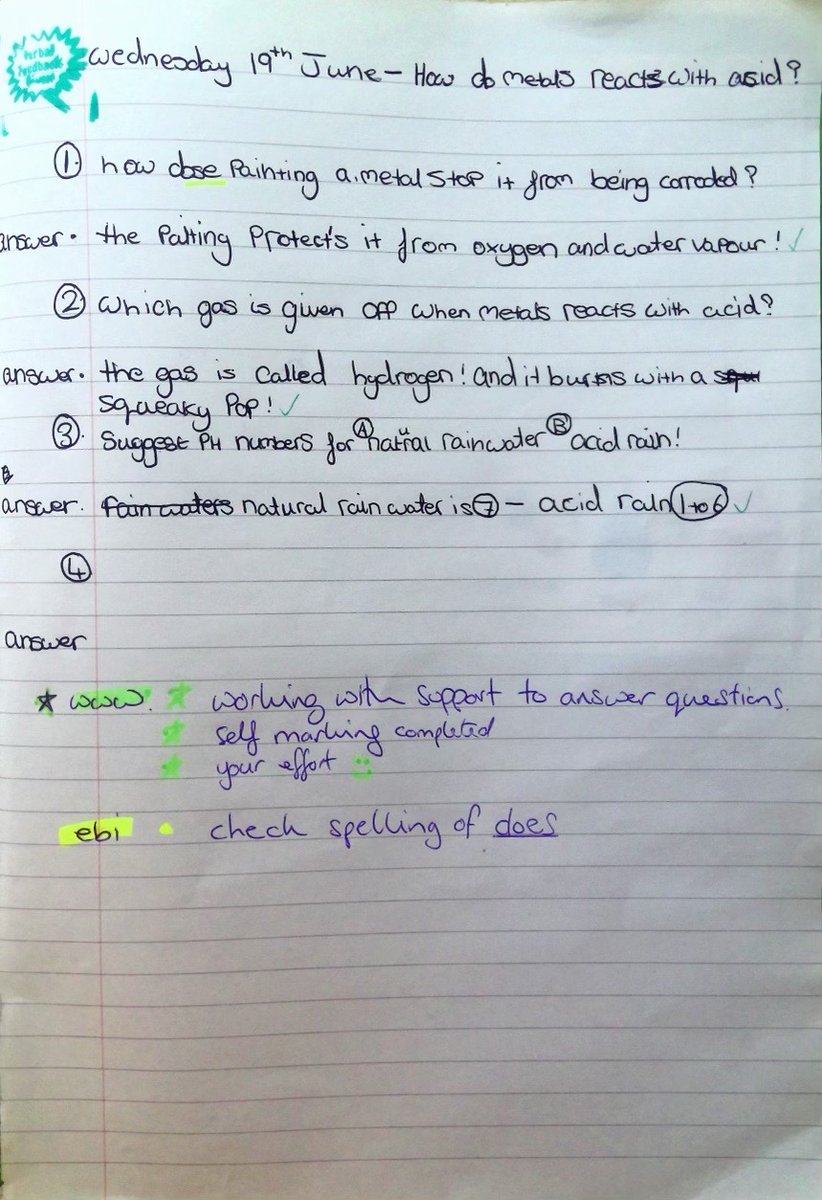 Verbal
Feedback
Given
Wednesday 19th June - How do metals reacts with acid?
1. how dose Painting a metal stop it from being corroded?
answer. the Paiting Protect's it from oxygen and water vapour! ✓
2 which gas is given off when metals reacts with acid?
answer. the gas is called hydrogen! and it burns with a
squeaky Pop! ✓
3. Suggest PH numbers for A natural rainwater B acid rain!
answer. rain waters natural rain water is 7 - acid rain 1 to 6 ✓
4
answer
★ www. ★ working with support to answer questions.
★ self marking completed
★ your effort
ebi • check spelling of does